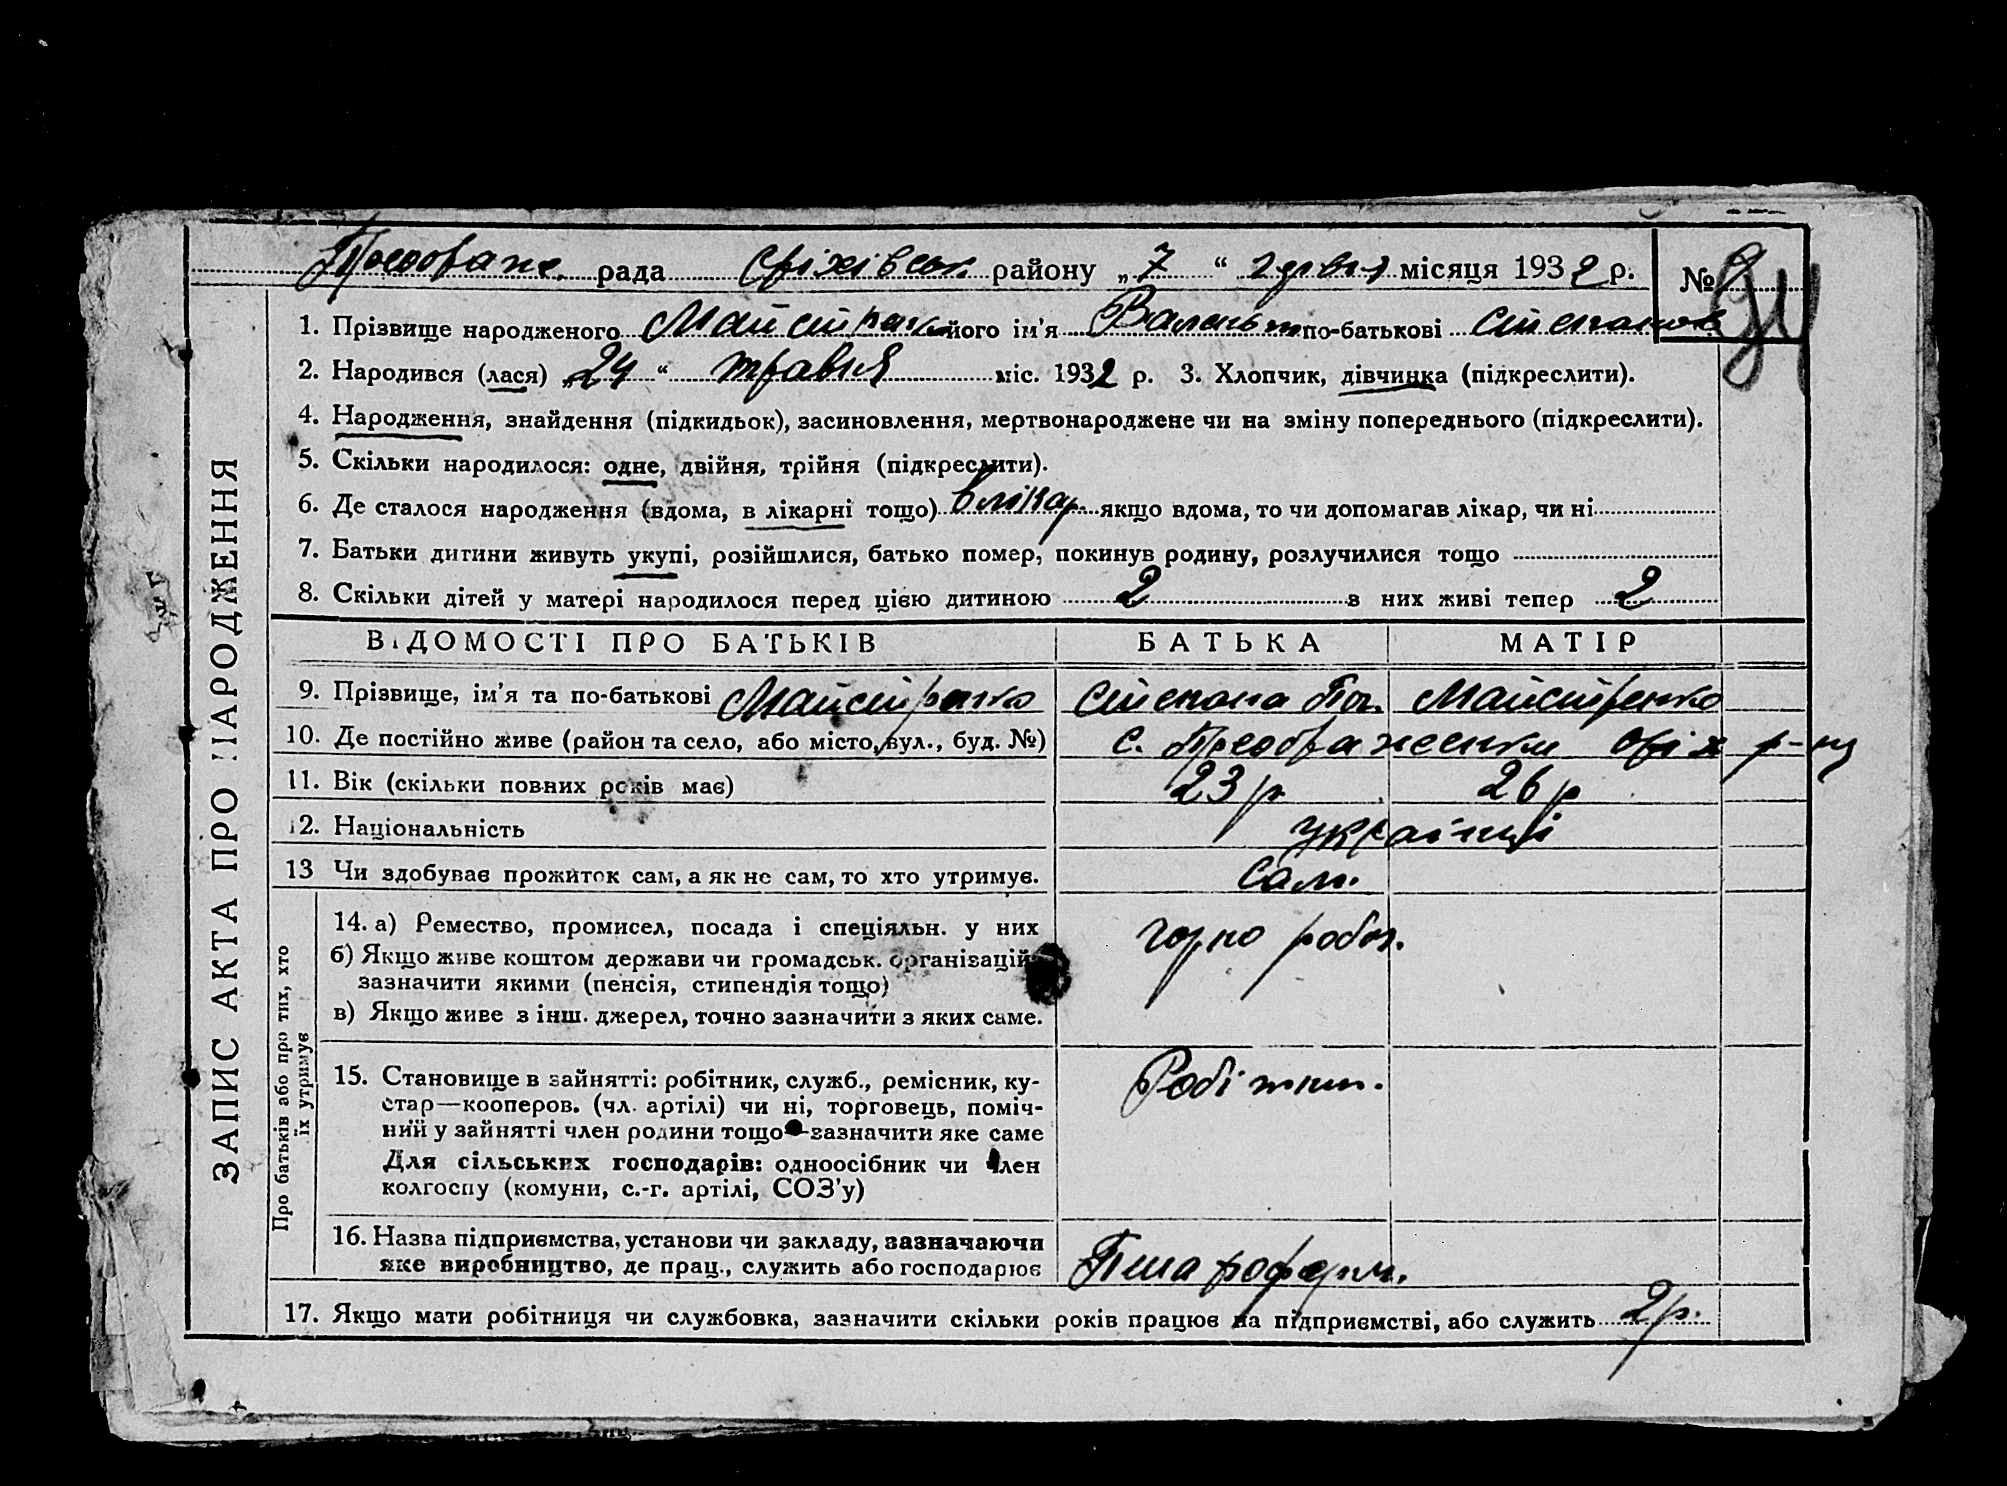 Преображе. рада Оріхівськ. району „7“ грудня місяця 1932 р. №
1. Прізвище народженого Майстренко його ім’я Валент по-батькові Степанов
2. Народився (лася) „24“ травня міс. 1932 р. 3. Хлопчик, дівчинка (підкреслити).
4. Народження, знайдення (підкидьок), засиновлення, мертвонароджене чи на зміну попереднього (підкреслити).
5. Скільки народилося: одне, двійня, трійня (підкреслити).
6. Де сталося народження (вдома, в лікарні тощо) в лікар. якщо вдома, то чи допомагав лікар, чи ні
7. Батьки дитини живуть укупі, розійшлися, батько помер, покинув родину, розлучилися тощо
8. Скільки дітей у матері народилося перед цією дитиною 2 з них живі тепер 2
ВІДОМОСТІ ПРО БАТЬКІВ БАТЬКА МАТІР
9. Прізвище, ім’я та по-батькові Майстренко Степана Майстренко
10. Де постійно живе (район та село, або місто, вул., буд. №) с. Преображенки Оріх р-ну
11. Вік (скільки повних років має) 23 р 26 р
12. Національність українці
13 Чи здобуває прожиток сам, а як не сам, то хто утримує. Сам.
14. а) Ремество, промисел, посада і спеціяльн. у них горно робоч.
б) Якщо живе коштом держави чи громадськ. організацій
зазначити якими (пенсія, стипендія тощо)
в) Якщо живе з інш. джерел, точно зазначити з яких саме.
15. Становище в зайнятті: робітник, служб., ремісник, ку-
стар—кооперов. (чл. артілі) чи ні, торговець, поміч-
ний у зайнятті член родини тощо—зазначити яке саме
Для сільських господарів: одноосібник чи член
колгоспу (комуни, с.-г. артілі, СОЗ’у)
Робітник.
16. Назва підприємства, установи чи закладу, зазначаючи
яке виробництво, де прац., служить або господарює
17. Якщо мати робітниця чи службовка, зазначити скільки років працює на підприємстві, або служить 2 р.
ЗАПИС АКТА ПРО НАРОДЖЕННЯ
Про батьків або про тих, хто
їх утримує